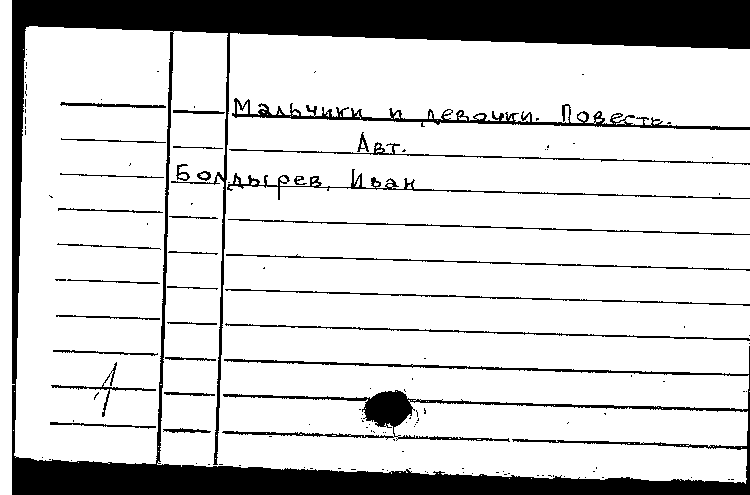 Мальчики и девочки. Повесть.
Авт.
Болдырев, Иван